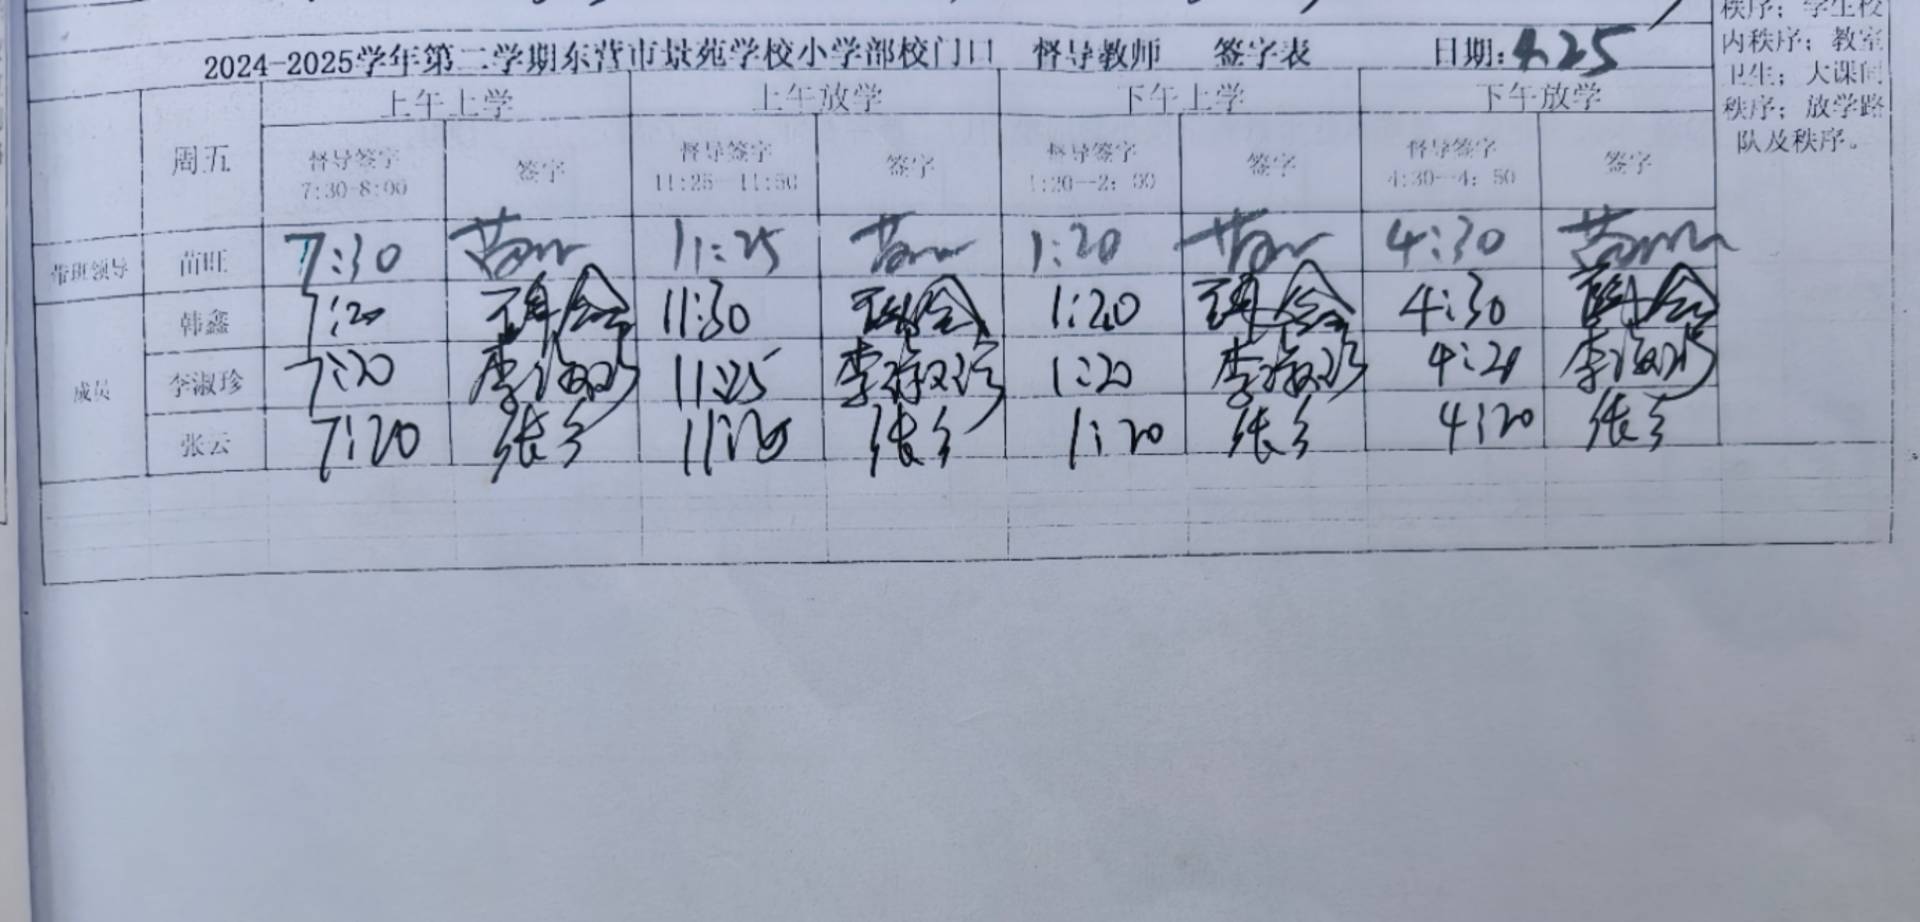 秩序；学生校
内秩序；教室
卫生；大课间
秩序；放学路
队及秩序。
2024-2025学年第二学期东营市景苑学校小学部校门口 督导教师 签字表 日期:4.25
周五 上午上学 上午放学 下午上学 下午放学
督导签字 签字 督导签字 签字 督导签字 签字 督导签字 签字
7:30-8:00 11:25--11:50 1:20--2:00 4:30--4:50
带班领导 苗旺 7:30 11:25 1:20 4:30
成员
韩鑫 7:20 韩鑫 11:30 韩鑫 1:20 韩鑫 4:30 韩鑫
李淑珍 7:20 李淑珍 11:25 李淑珍 1:20 李淑珍 4:20 李淑珍
张云 7:20 张云 11:20 张云 1:20 张云 4:20 张云